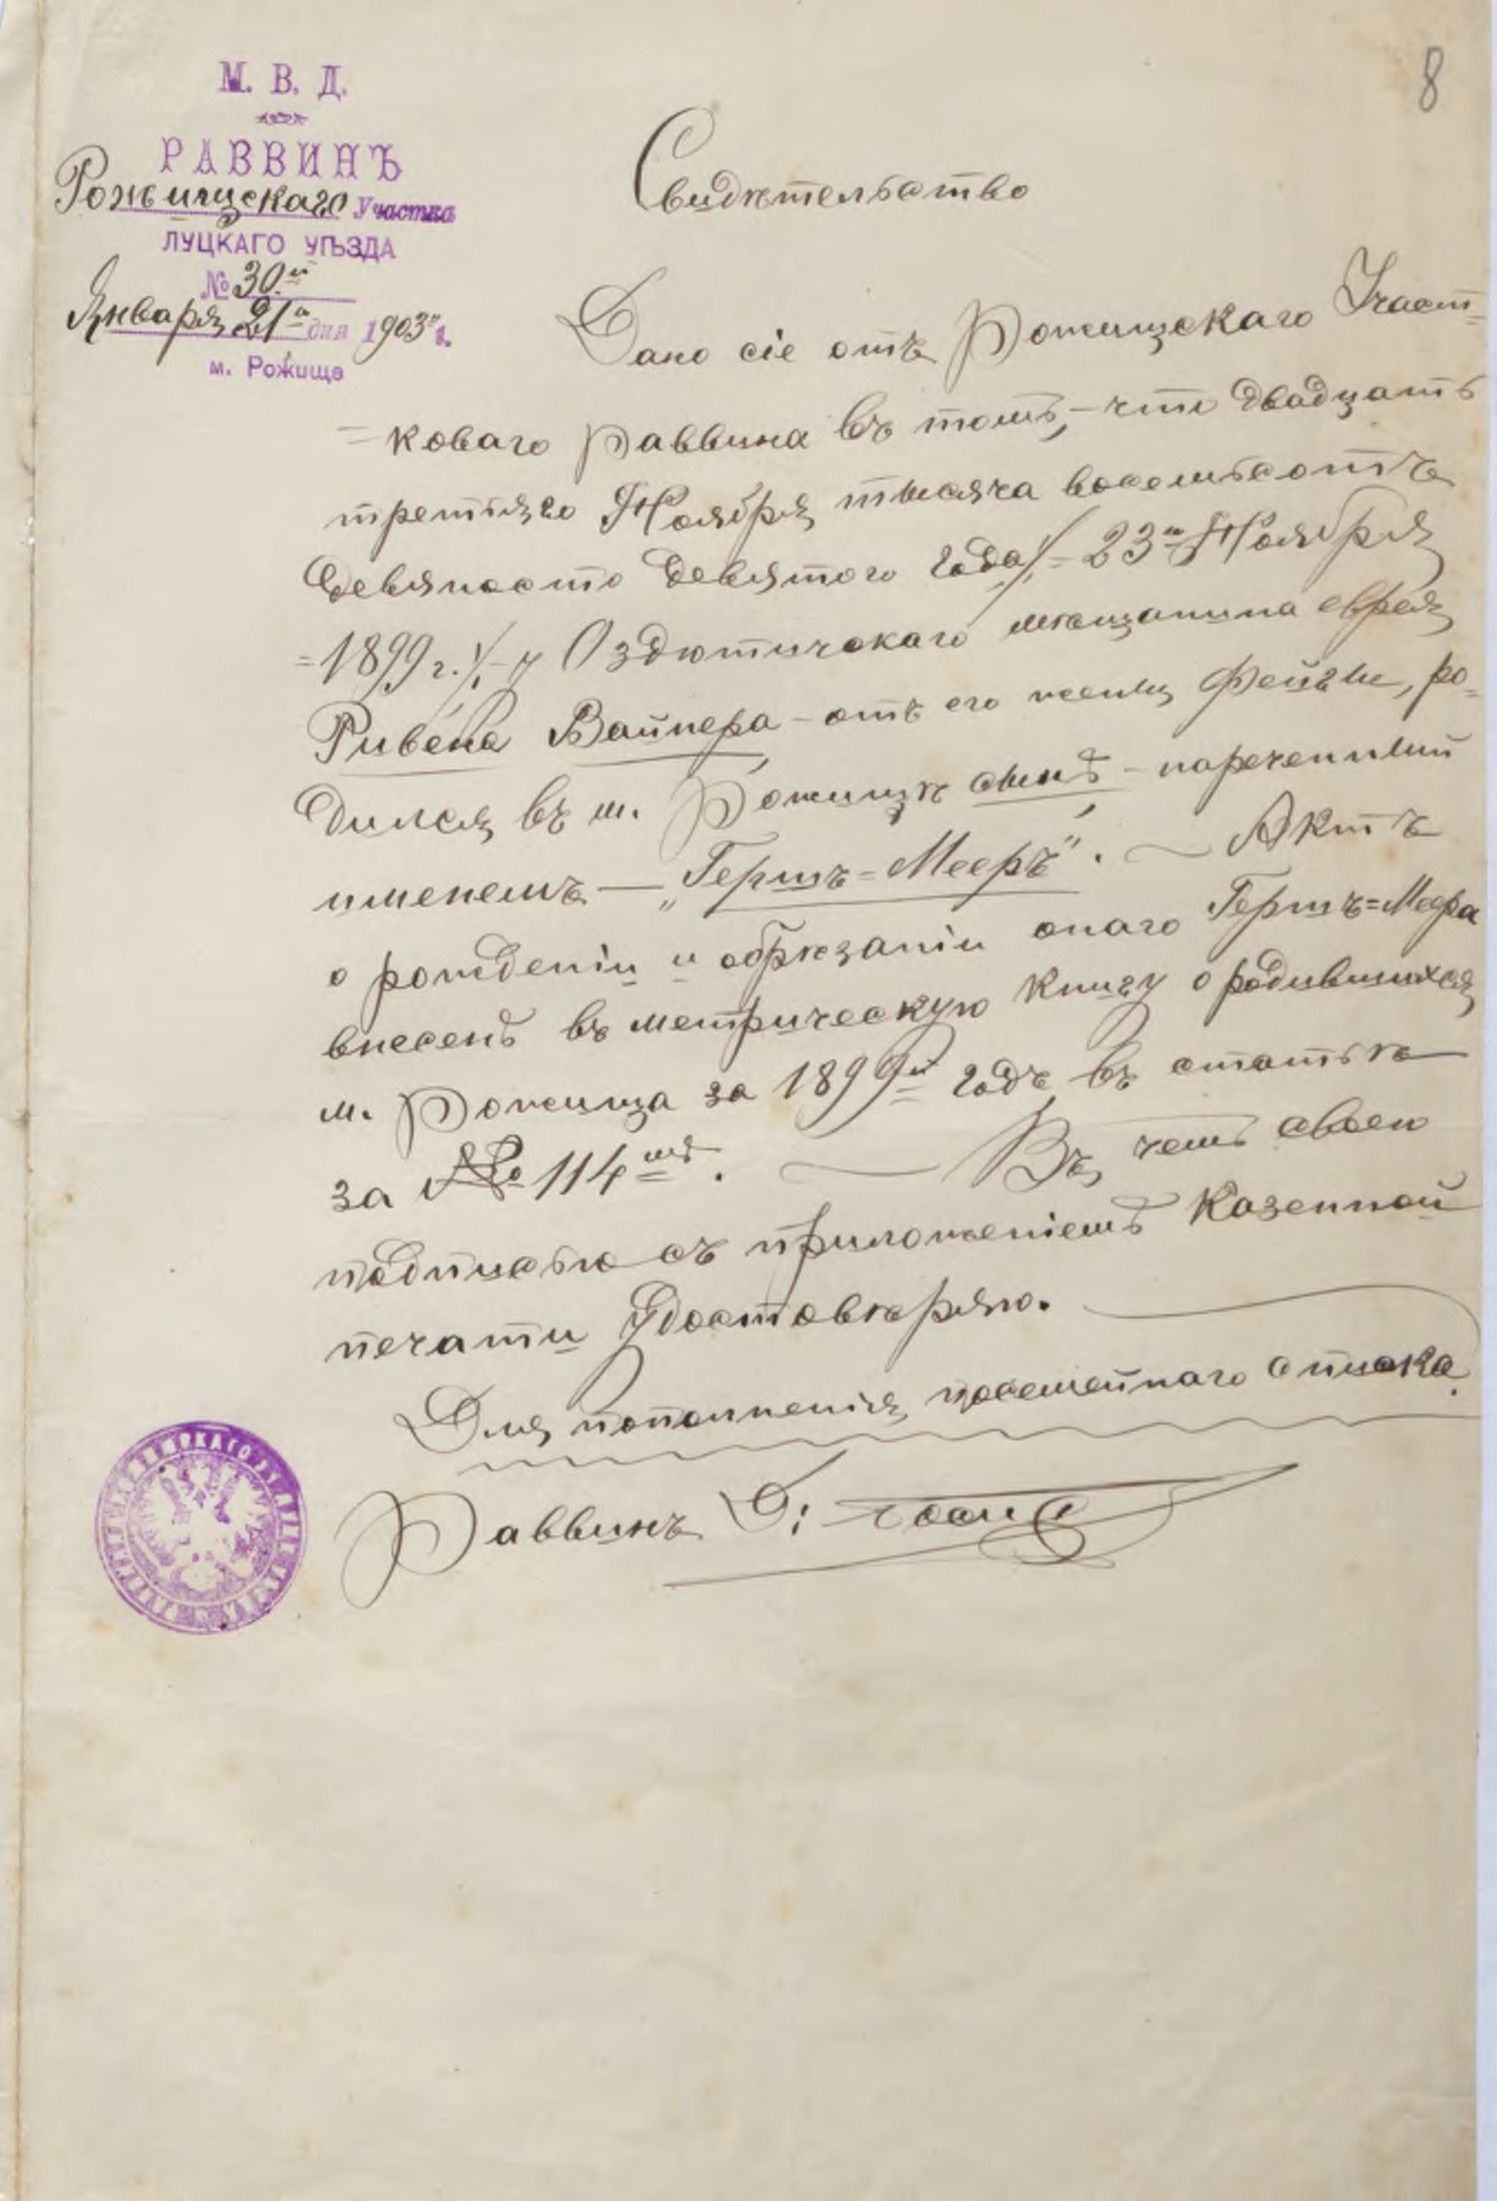 8
М. В. Д.
РАВВИНЪ
Рожищскаго Участка
ЛУЦКАГО УѢЗДА
№ 30й
Января 21го дня 1903 г.
м. Рожище
Свидѣтельство
Дано сіе отъ Рожищскаго Участ=
=коваго Раввина въ томъ, - что двадцать
третьяго Ноября тысяча восемьсотъ
девяносто девятого года /= 23го Ноября
=1899 г. /- у Оздютичскаго мѣщанина еврея
Ривена Вайнера - отъ его жены Фейги, ро=
дился въ м. Рожищѣ сынъ - нареченный
именемъ — „Гершъ=Мееръ". — Актъ
о рожденіи и обрѣзаніи онаго Гершъ=Меера
внесенъ въ метрическую книгу о родившихся
м. Рожища за 1899й годъ въ статьѣ
за № 114мъ. — Въ чемъ своею
подписью съ приложеніемъ Казенной
печати удостовѣряю.
Для пополненія посемейнаго списка.
Раввинъ